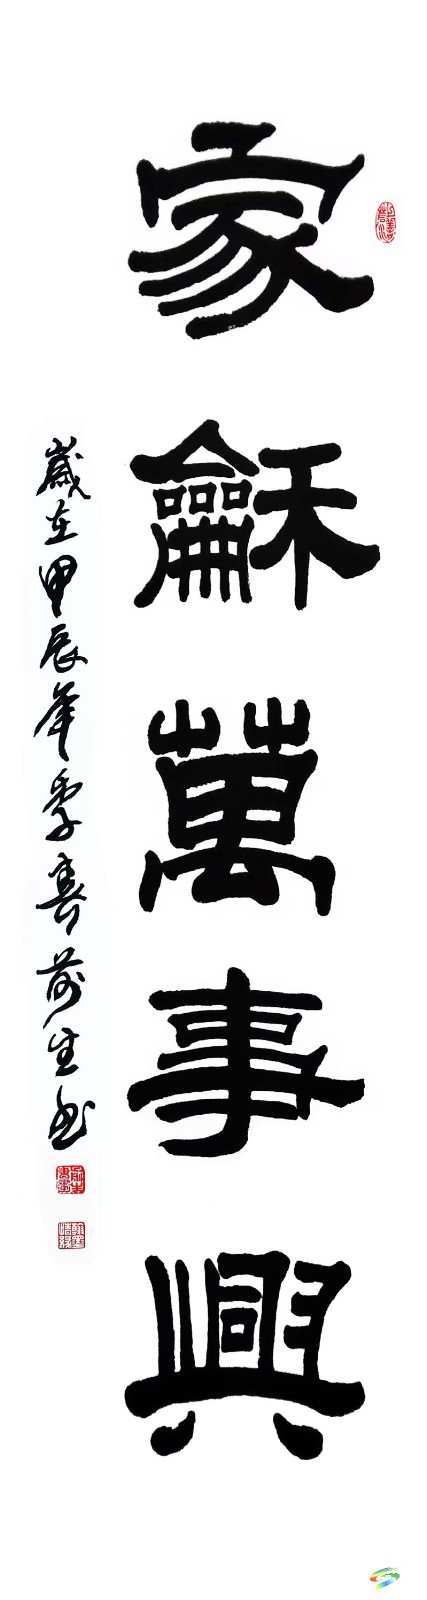 家龢萬事興
歲在甲辰年季春前生书